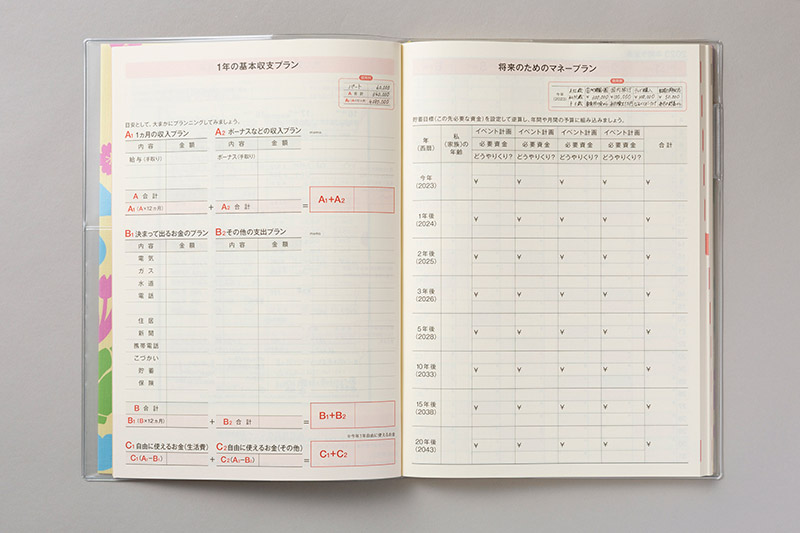 1年の基本収支プラン
記入例
パート 60,000
A 合計 540,000
目安として、大まかにプランニングしてみましょう。
A1 1ヵ月の収入プラン
A2 ボーナスなどの収入プラン
memo
内容 金額
内容 金額
給与(手取り)
ボーナス(手取り)
A 合計
A1 (A×12ヵ月) + A2 合計 = A1+A2
B1 決まって出るお金のプラン
B2 その他の支出プラン
memo
内容 金額
内容 金額
電気
ガス
水道
電話
住居
新聞
携帯電話
こづかい
貯蓄
保険
B 合計
B1 (B×12ヵ月) + B2 合計 = B1+B2
※今年1年自由に使えるお金
C1 自由に使えるお金(生活費)
C2 自由に使えるお金(その他)
C1 (A1−B1) + C2 (A2−B2) = C1+C2
将来のためのマネープラン
記入例
今年
貯蓄目標(この先必要な資金)を設定して逆算し、年間や月間の予算に組み込みましょう。
年(西暦)
私(家族)の年齢
イベント計画 イベント計画 イベント計画 イベント計画
必要資金 必要資金 必要資金 必要資金
どうやりくり? どうやりくり? どうやりくり? どうやりくり?
合計
今年
(2023)
¥ ¥ ¥ ¥ ¥
1年後
(2024)
¥ ¥ ¥ ¥ ¥
2年後
(2025)
¥ ¥ ¥ ¥ ¥
3年後
(2026)
¥ ¥ ¥ ¥ ¥
5年後
(2028)
¥ ¥ ¥ ¥ ¥
10年後
(2033)
¥ ¥ ¥ ¥ ¥
15年後
(2038)
¥ ¥ ¥ ¥ ¥
20年後
(2043)
¥ ¥ ¥ ¥ ¥